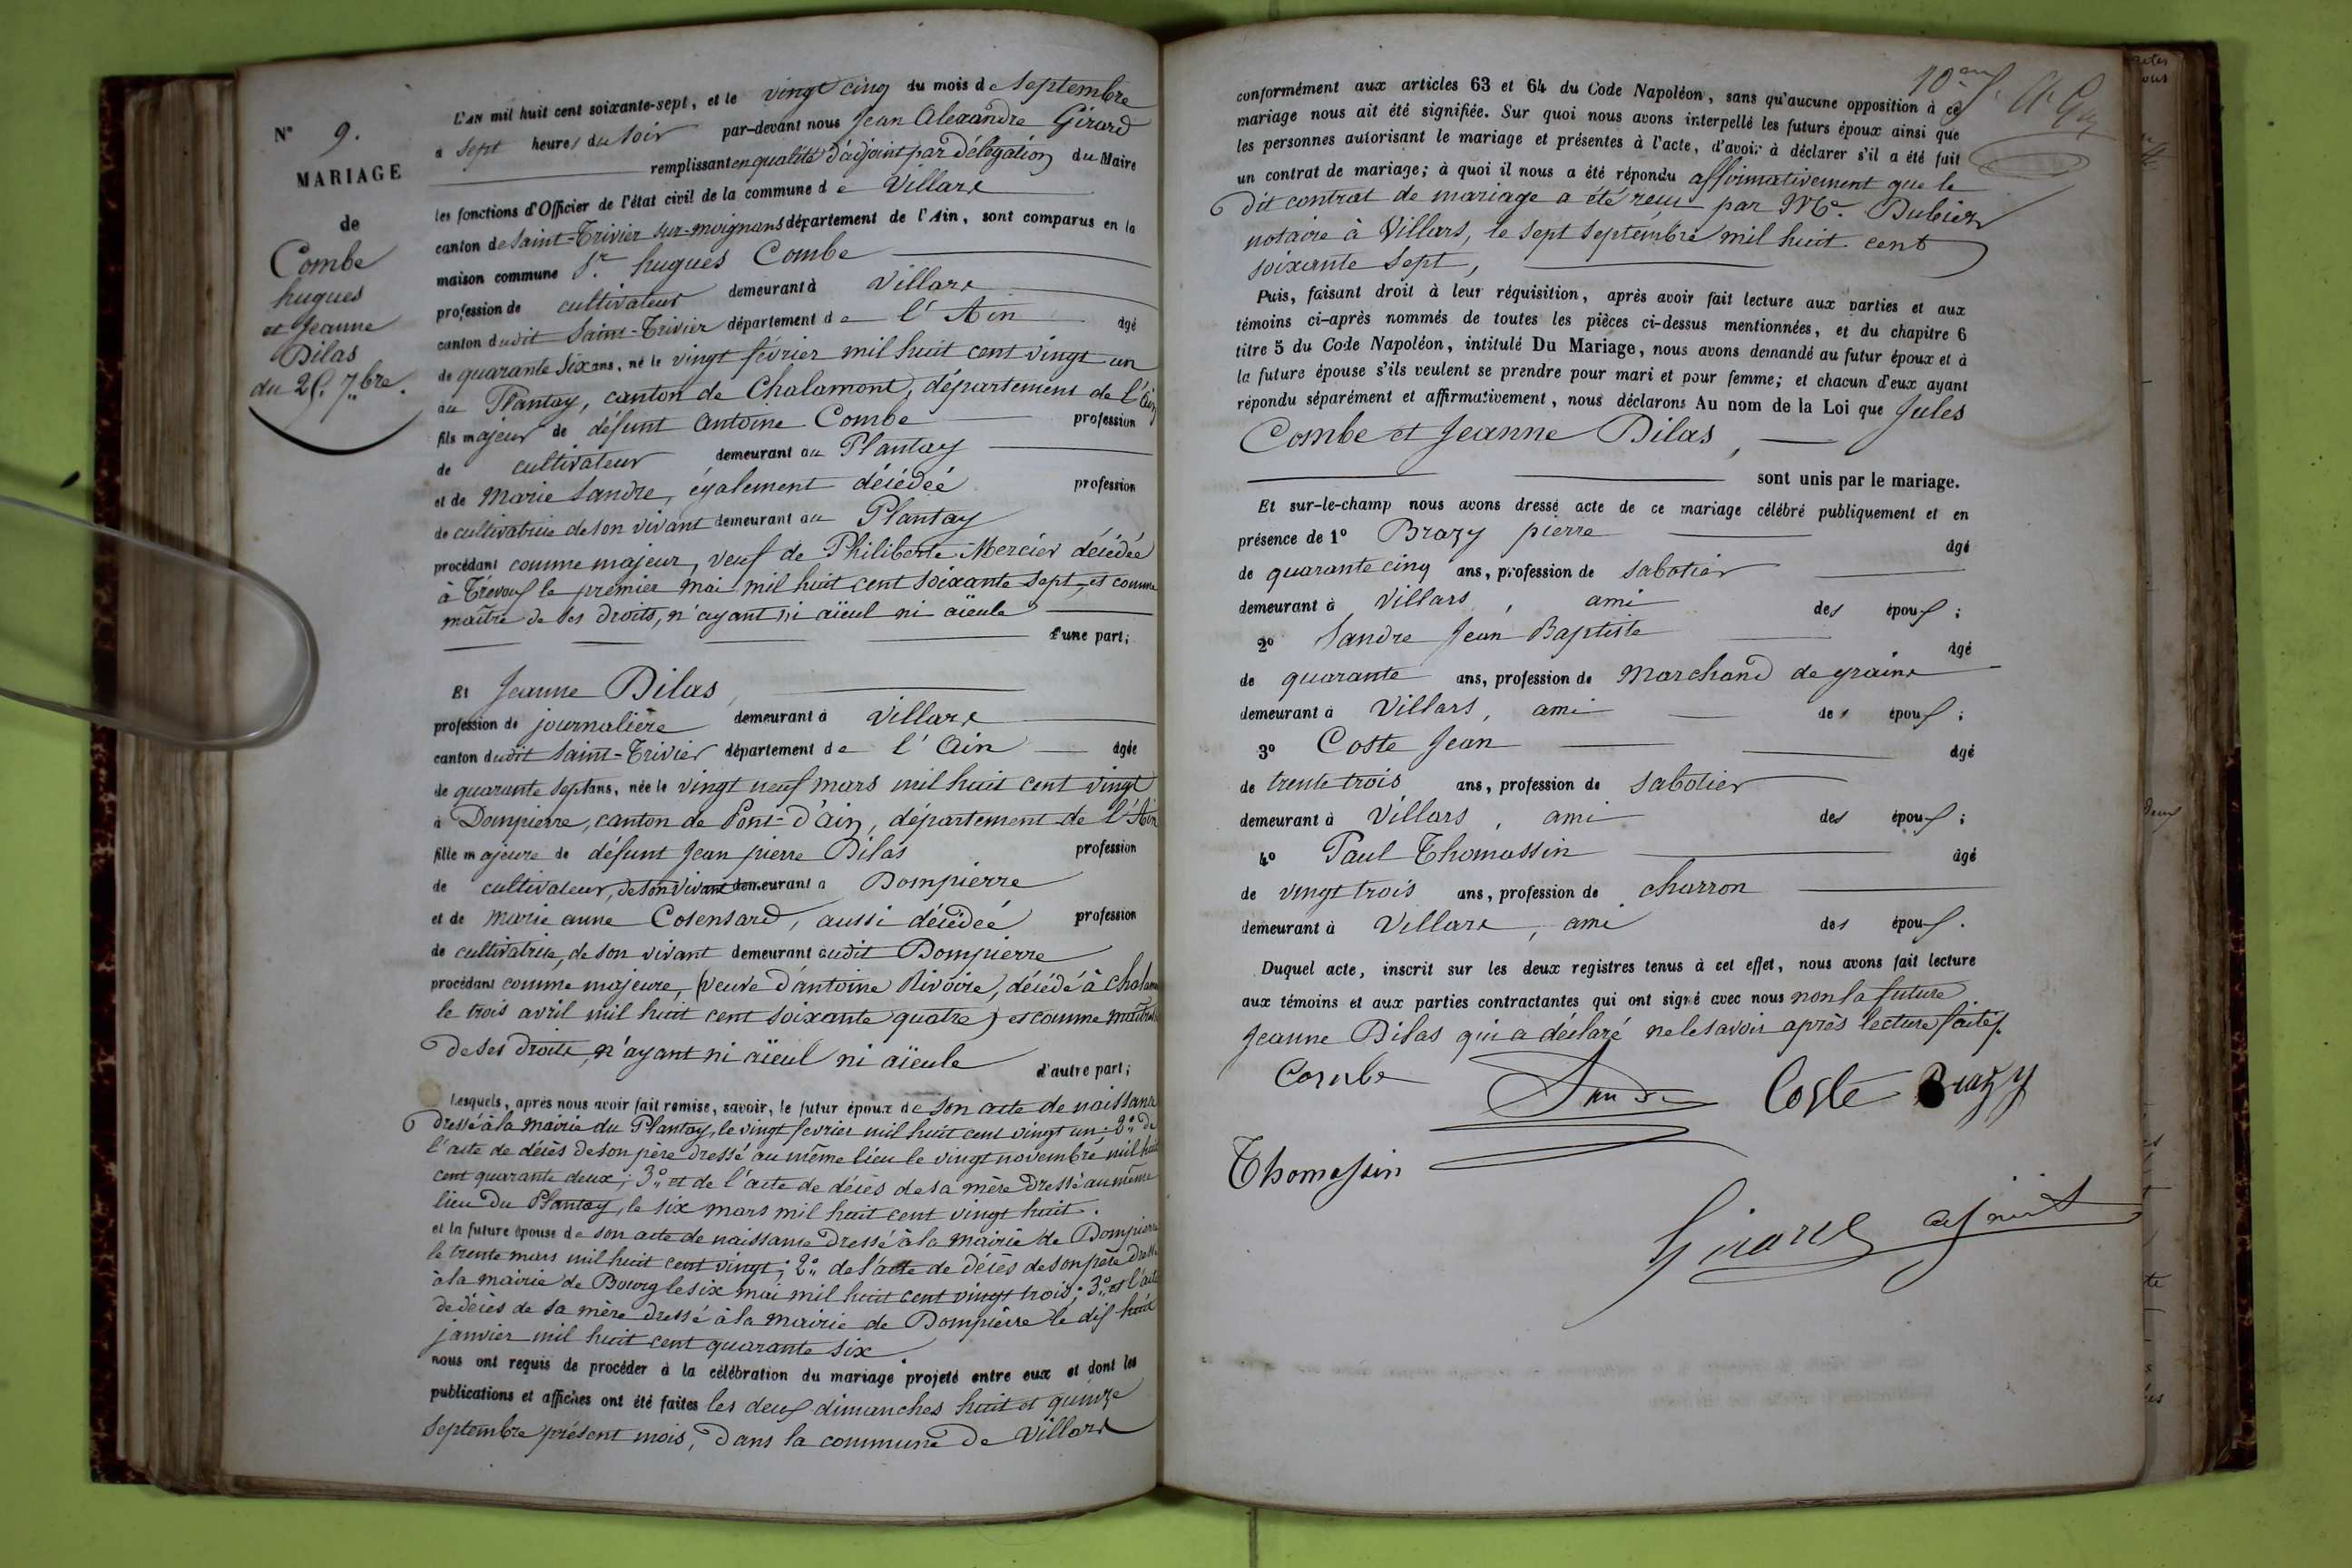 N° 9.
MARIAGE
de
Combe
hugues
et Jeanne
Dilas
du 25. 7bre.
L'AN mil huit cent soixante-sept, et le vingt cinq du mois de Septembre
à sept heures du soir par-devant nous Jean Alexandre Girard
remplissant en qualité d'adjoint par délégation du Maire
les fonctions d'Officier de l'état civil de la commune de Villars
canton de Saint-Trivier sur-moignans département de l'Ain, sont comparus en la
maison commune Sr. hugues Combe
profession de cultivateur demeurant à Villars
canton dudit Saint-Trivier département de l'Ain âgé
de quarante six ans, né le vingt février mil huit cent vingt un
au Plantay, canton de Chalamont, département de l'Ain
fils majeur de défunt Antoine Combe profession
de cultivateur demeurant au Plantay
et de Marie Sandre, également décédée profession
de cultivatrice de son vivant demeurant au Plantay
procédant comme majeur, veuf de Philiberte Mercier décédée
à Trévoux le premier mai mil huit cent soixante sept, et comme
maître de ses droits, n'ayant ni aïeul ni aïeule
d'une part;
Et Jeanne Dilas,
profession de journalière demeurant à Villars
canton dudit Saint-Trivier département de l'Ain âgée
de quarante sept ans, née le vingt neuf mars mil huit cent vingt
à Dompierre, canton de Pont-d'Ain, département de l'Ain
fille majeure de défunt Jean pierre Dilas profession
de cultivateur, de son vivant demeurant à Dompierre
et de marie anne Cosensard, aussi décédée profession
de cultivatrice, de son vivant demeurant audit Dompierre
procédant comme majeure, (veuve d'antoine Rivoire, décédé à
le trois avril mil huit cent soixante quatre) et comme maîtresse
de ses droits, n'ayant ni aïeul ni aïeule
d'autre part;
Lesquels, après nous avoir fait remise, savoir, le futur époux de son acte de naissance
dressé à la mairie du Plantay, le vingt fevrier mil huit cent vingt un; 2° de
l'acte de décès de son père dressé au même lieu le vingt novembre mil huit
cent quarante deux; 3° et de l'acte de décès de sa mère dressé au même
lieu du Plantay, le six mars mil huit cent vingt huit.
et la future épouse de son acte de naissance dressé à la mairie de Dompierre
le trente mars mil huit cent vingt; 2° de l'acte de décès de son père dressé
à la mairie de Bourg le six mai mil huit cent vingt trois; 3° et l'acte
de décès de sa mère dressé à la mairie de Dompierre le dix huit
janvier mil huit cent quarante six.
nous ont requis de procéder à la célébration du mariage projeté entre eux et dont les
publications et affiches ont été faites les deux dimanches huit et quinze
septembre présent mois, dans la commune de Villars
conformément aux articles 63 et 64 du Code Napoléon, sans qu'aucune opposition à ce
mariage nous ait été signifiée. Sur quoi nous avons interpellé les futurs époux ainsi que
les personnes autorisant le mariage et présentes à l'acte, d'avoir à déclarer s'il a été fait
un contrat de mariage; à quoi il nous a été répondu affirmativement que le
dit contrat de mariage a été reçu par Me. Dubier
notaire à Villars, le sept septembre mil huit cent
soixante sept,
Puis, faisant droit à leur réquisition, après avoir fait lecture aux parties et aux
témoins ci-après nommés de toutes les pièces ci-dessus mentionnées, et du chapitre 6
titre 5 du Code Napoléon, intitulé Du Mariage, nous avons demandé au futur époux et à
la future épouse s'ils veulent se prendre pour mari et pour femme; et chacun d'eux ayant
répondu séparément et affirmativement, nous déclarons Au nom de la Loi que Jules
Combe et Jeanne Dilas,
sont unis par le mariage.
Et sur-le-champ nous avons dressé acte de ce mariage célébré publiquement et en
présence de 1° Brazy pierre
âgé
de quarante cinq ans, profession de sabotier
demeurant à Villars, ami des époux;
2° Sandre Jean Baptiste
âgé
de quarante ans, profession de Marchand de grains
demeurant à Villars, ami des époux;
3° Coste Jean âgé
de trente trois ans, profession de sabotier
demeurant à Villars, ami des époux;
4° Paul Thomassin âgé
de vingt trois ans, profession de charron
demeurant à Villars, ami des époux.
Duquel acte, inscrit sur les deux registres tenus à cet effet, nous avons fait lecture
aux témoins et aux parties contractantes qui ont signé avec nous non la future
Jeanne Dilas qui a déclaré ne le savoir après lecture faite.
Combe Sandre Coste Brazy
Thomassin
Girard adjoint